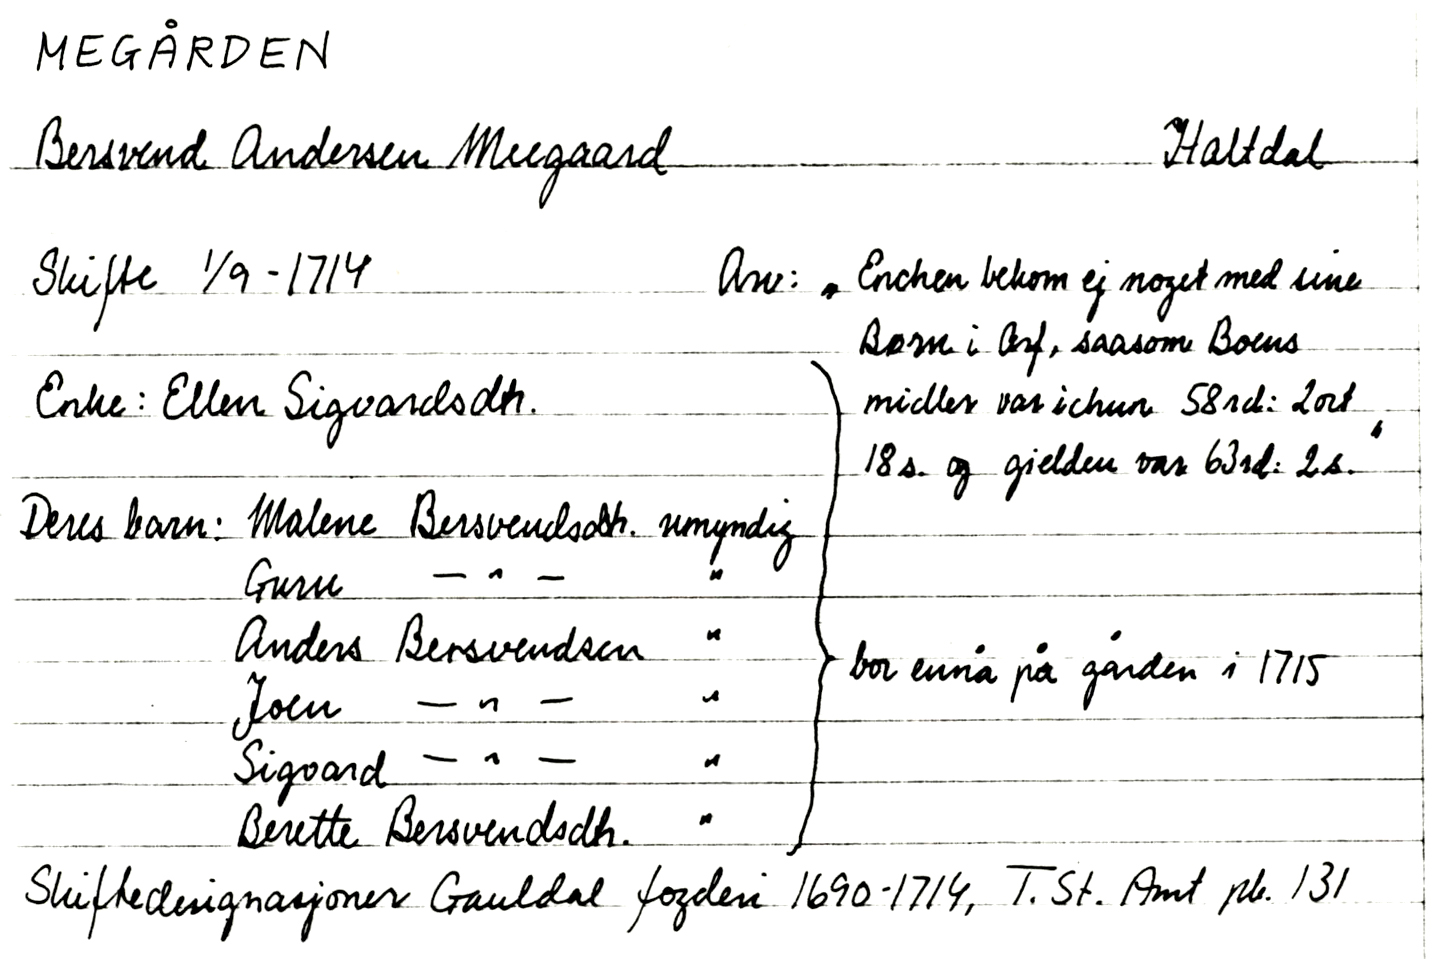 MEGÅRDEN
Bersvend Andersen Meegaard Haltdal
Skifte 1/9-1714 Anv: „Enchen bekom ej noget med sine
Børn i Arf, saasom Boens
Enke: Ellen Sigvardsdtr. midler var ichun 58rd: 2ort
18s. og gielden var 63rd: 2s.“
Deres barn: Malene Bersvendsdtr. umyndig
Guru — " — "
Anders Bersvendsen " bor ennå på gården i 1715
Joen — " — "
Sigvard — " — "
Berette Bersvendsdtr. "
Skiftedesignasjoner Gauldal fogderi 1690-1714, T. St. Amt pk. 131